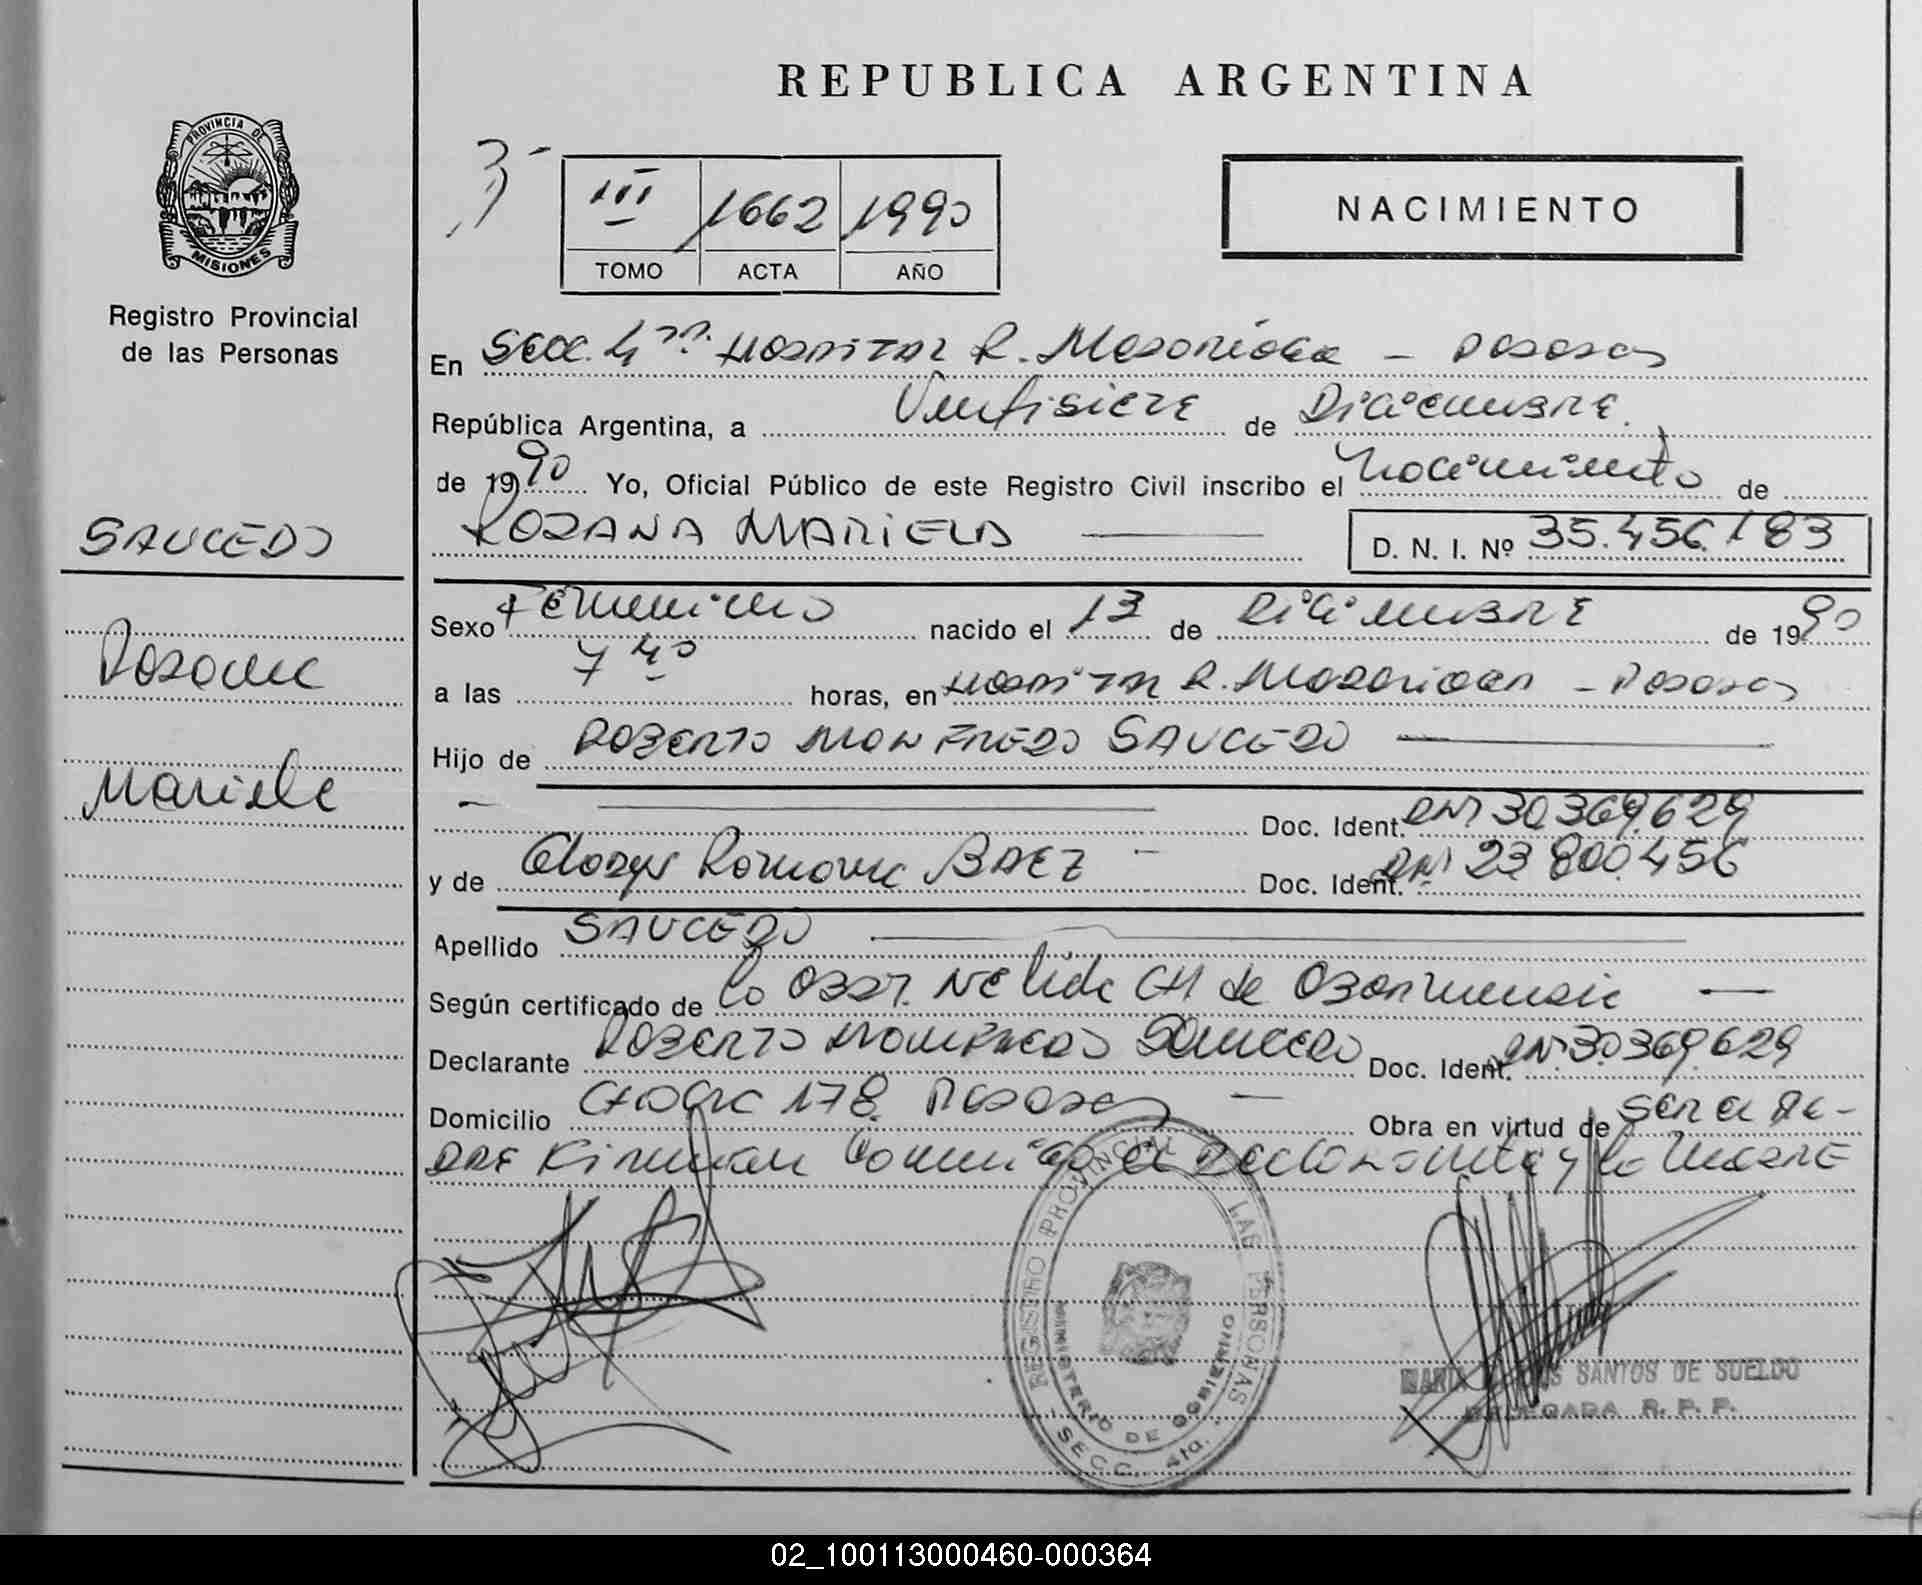 REPUBLICA ARGENTINA
PROVINCIA DE
MISIONES
Registro Provincial
de las Personas
III 1662 1990
TOMO ACTA AÑO
NACIMIENTO
En Secc. 4ta. Hospital R. Madariaga - Posadas
República Argentina, a Ventisiete de Diciembre
de 1990 Yo, Oficial Público de este Registro Civil inscribo el Nacimiento de
ROSANA MARIELA
D. N. I. Nº 35.456.183
SAUCEDO
Rosana
Mariela
Sexo Femenino nacido el 13 de Diciembre de 1990
a las 7 40 horas, en Hospital R. Madariaga - Posadas
Hijo de ROBERTO MONFREDO SAUCEDO
Doc. Ident. DNI 30.369.629
y de Gladys Romona BAEZ - Doc. Ident. DNI 23.800.456
Apellido SAUCEDO
Según certificado de la Obst. Nelida CH de
Declarante ROBERTO MONFREDO SAUCEDO Doc. Ident. DNI 30.369.629
Domicilio 178. Posadas - Obra en virtud de ser el pa-
dre Firman Conmigo el Declarante y la Madre
REGISTRO PROVINCIAL DE LAS PERSONAS
MINISTERIO DE GOBIERNO
SECC. 4ta.
SANTOS DE SUELDO
DELEGADA R. P. P.
02_100113000460-000364